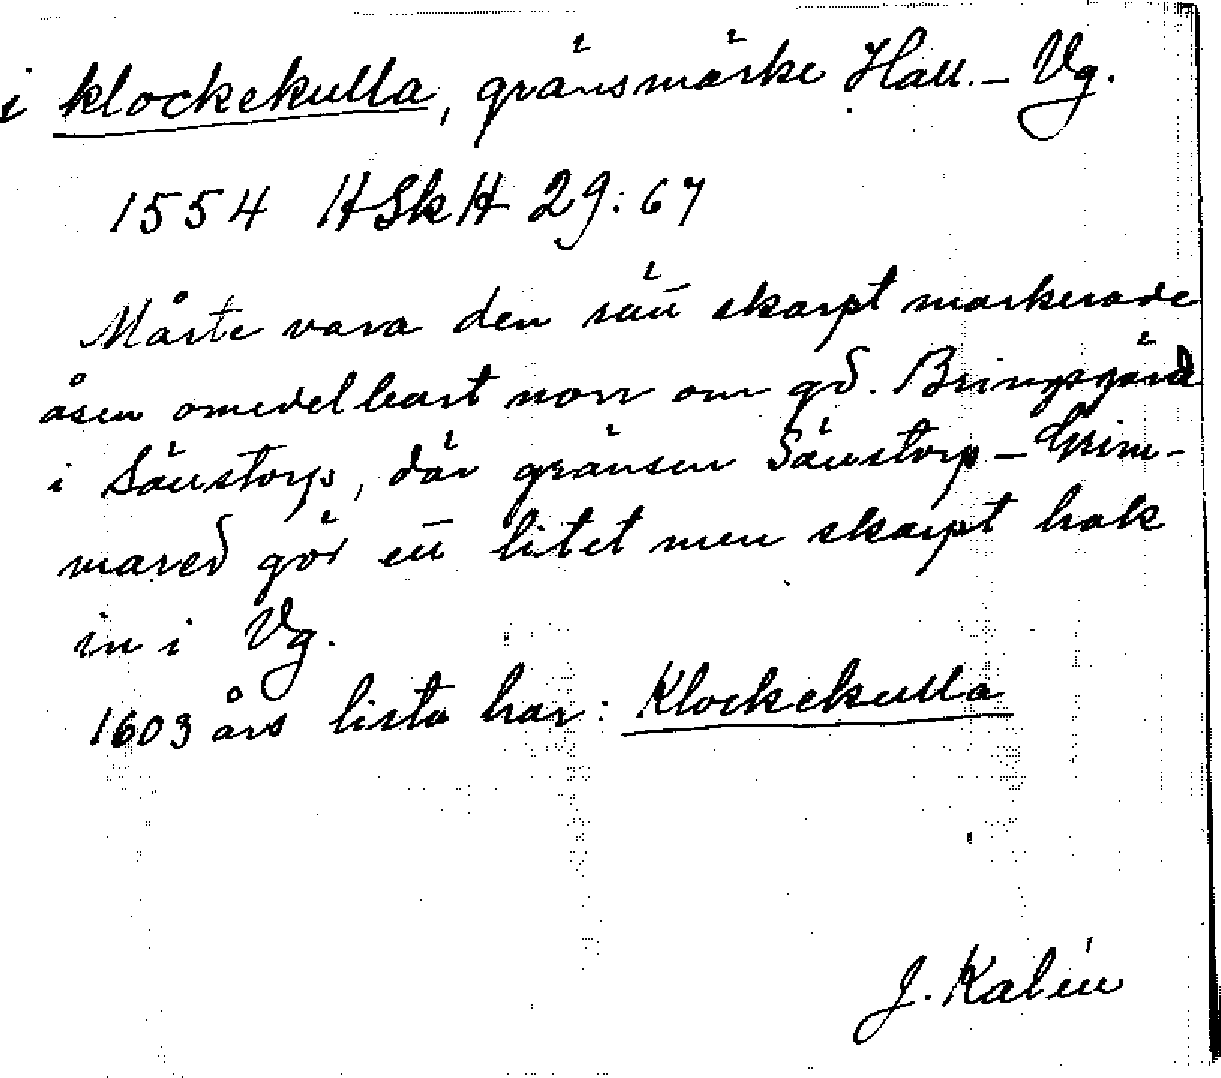 i klockekulla, gränsmärke Hall. – Vg.
1554 HSkH 29:67
Måste vara den rätt skarpt markerade
åsen omedelbart norr om gd. Bringsgård
i Sännstorp, där gränsen Sännstorp – Grim-
mared gör ett litet men skarpt hak
in i Vg.
1603 års lista har: Klockekulla
J. Kalén